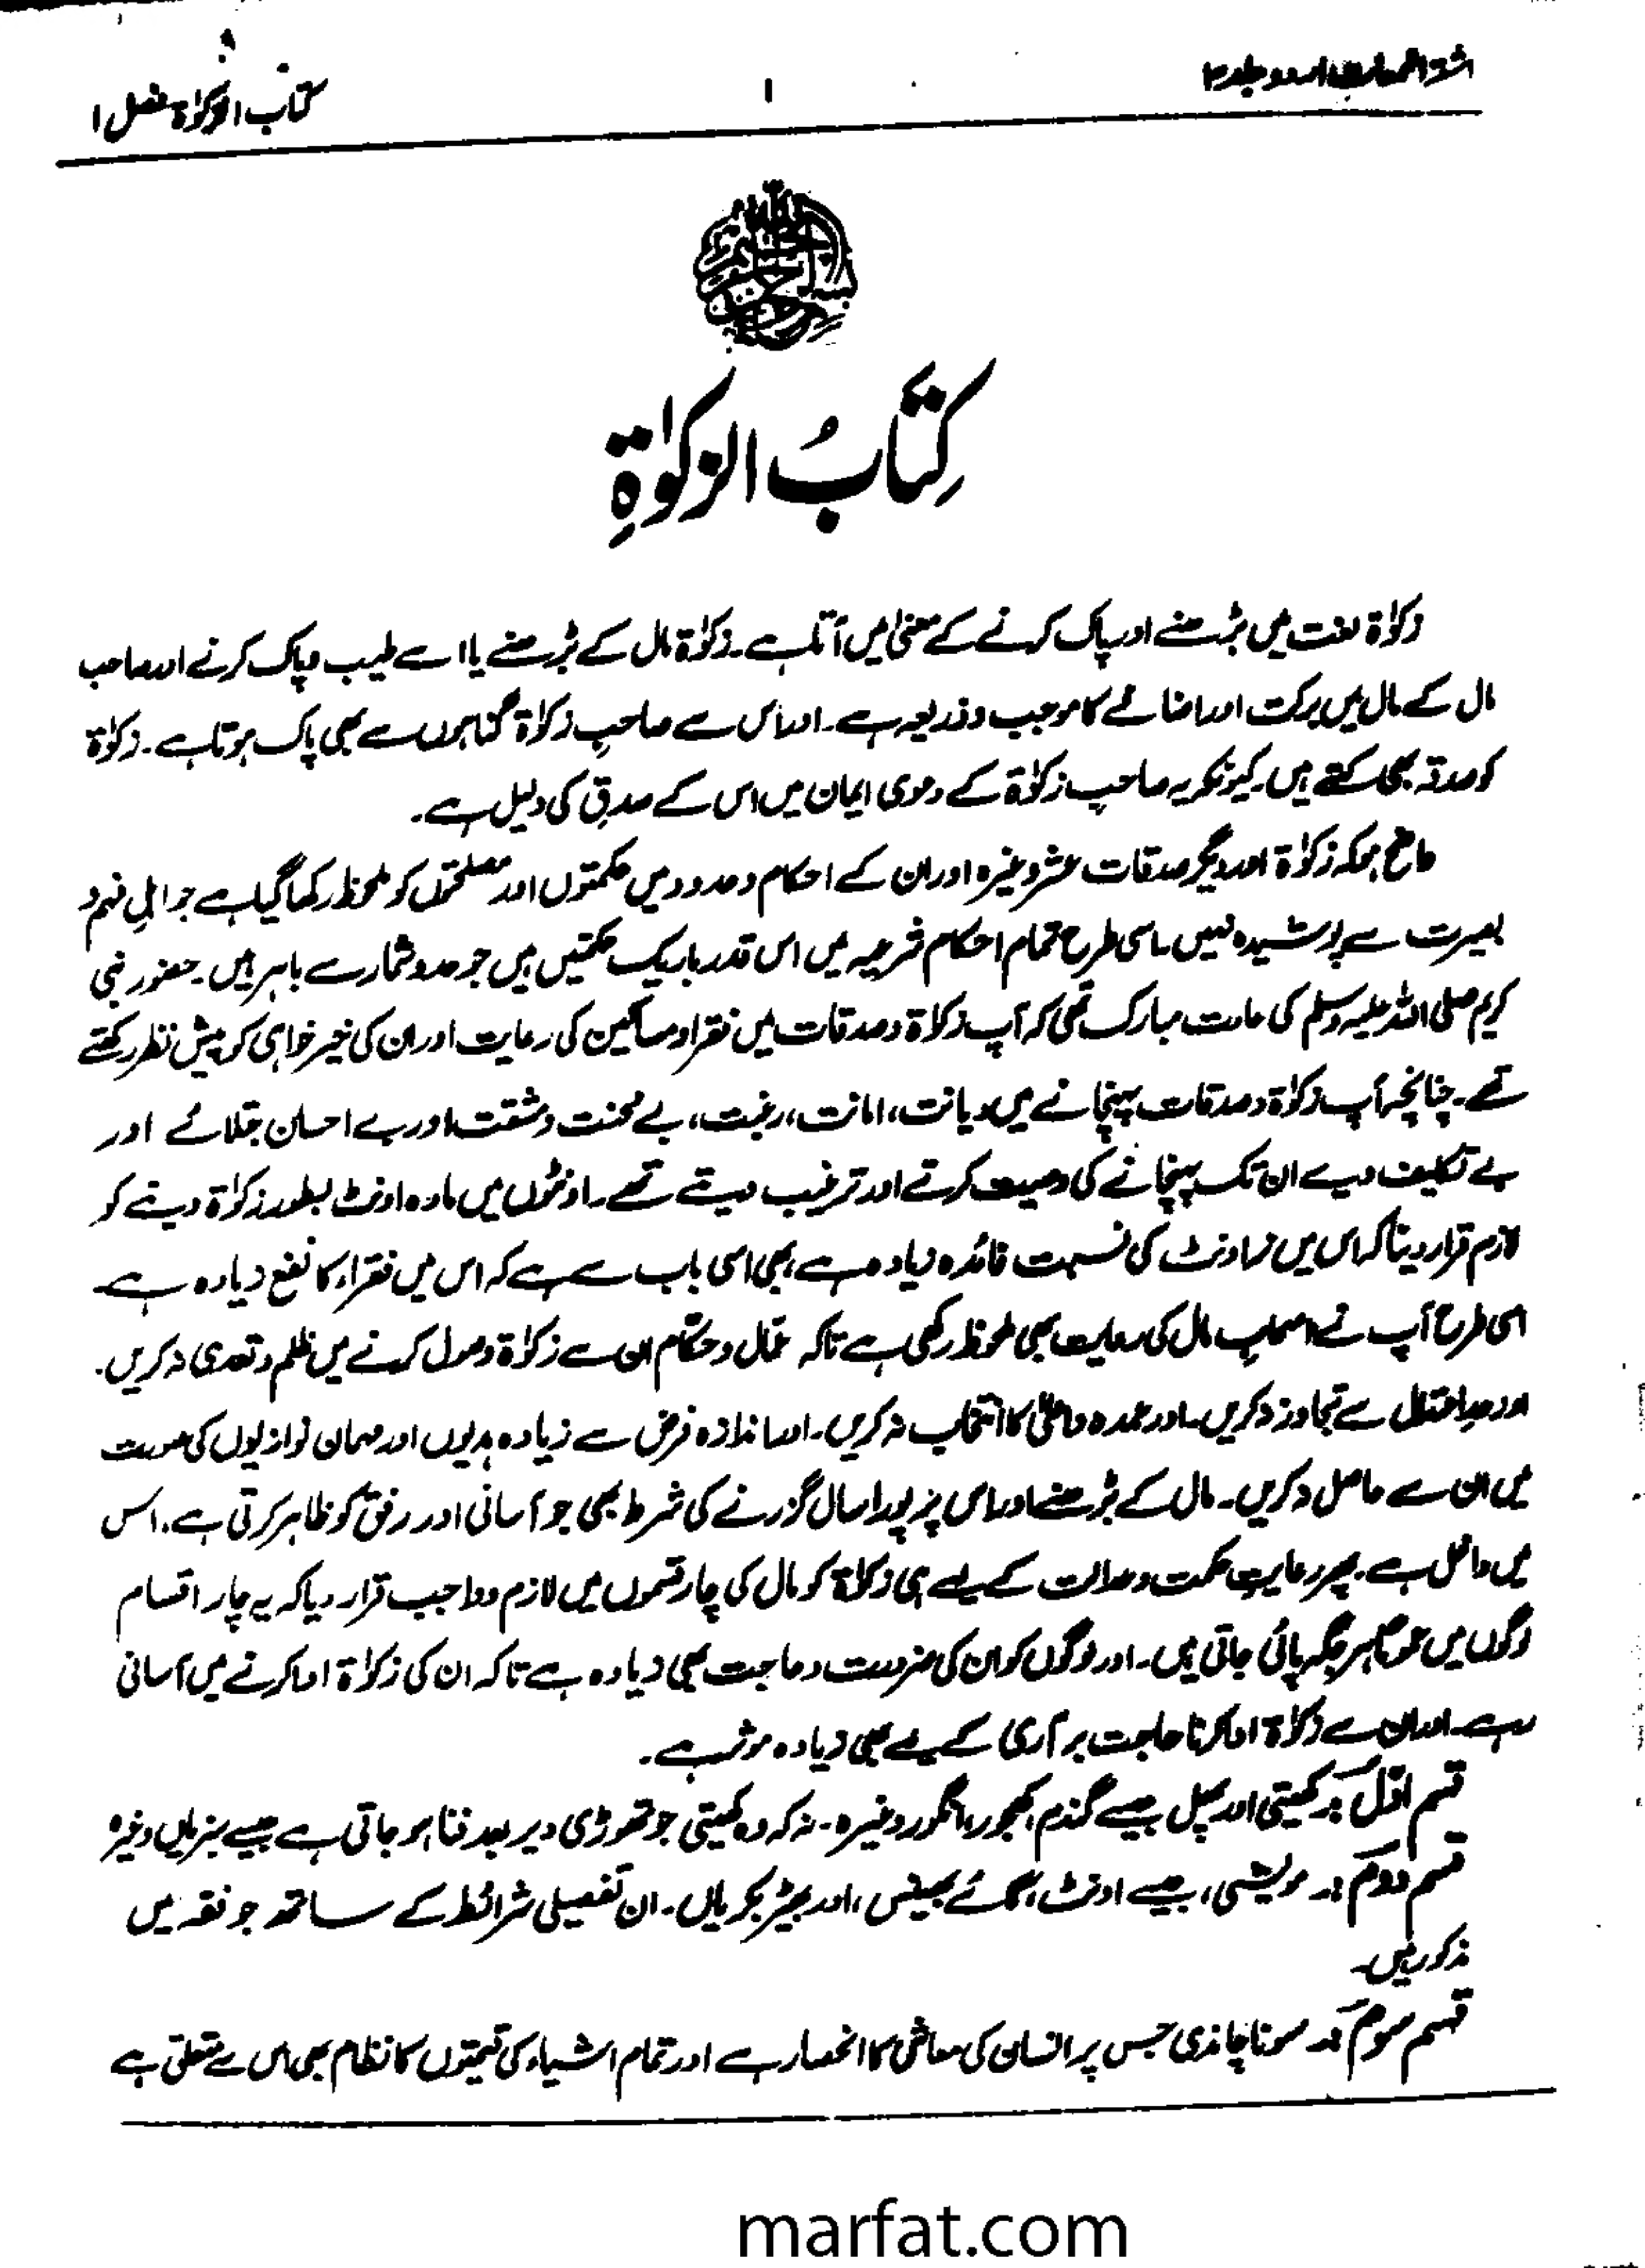 اشعۃ اللمعات اردو جلد ۳
۱
کتاب الزکوٰۃ فصل ۱
بسم اللہ الرحمٰن الرحیم
کِتَابُ الزکوٰۃِ
زکوٰۃ لغت میں بڑھنے اور پاک کرنے کے معنیٰ میں آتا ہے۔ زکوٰۃ مال کے بڑھنے یا اسے طیب و پاک کرنے اور صاحب
مال کے مال میں برکت اور اضافے کا موجب و ذریعہ ہے۔ اور اس سے صاحبِ زکوٰۃ گناہوں سے بھی پاک ہوتا ہے۔ زکوٰۃ
کو صدقہ بھی کہتے ہیں۔ کیونکہ یہ صاحبِ زکوٰۃ کے دعویٰ ایمان میں اس کے صدق کی دلیل ہے۔
واضح ہو کہ زکوٰۃ اور دیگر صدقات عشر وغیرہ اور ان کے احکام و حدود میں حکمتوں اور مصلحتوں کو ملحوظ رکھا گیا ہے جو اہلِ فہم و
بصیرت سے پوشیدہ نہیں۔ اسی طرح تمام احکام شرعیہ میں اس قدر باریک حکمتیں ہیں جو حد و شمار سے باہر ہیں۔ حضور نبی
کریم صلی اللہ علیہ وسلم کی عادت مبارک تھی کہ آپ زکوٰۃ و صدقات میں فقراء و مساکین کی رعایت اور ان کی خیر خواہی کو پیش نظر رکھتے
تھے۔ چنانچہ آپ زکوٰۃ و صدقات پہنچانے میں دیانت، امانت، رغبت، بے محنت و مشقت اور بے احسان جتلائے اور
بے تکلیف دیے ان تک پہنچانے کی وصیت کرتے اور ترغیب دیتے تھے۔ اونٹوں میں مادہ اونٹ بطور زکوٰۃ دینے کو
لازم قرار دینا کہ اس میں نر اونٹ کی نسبت فائدہ زیادہ ہے، بھی اسی باب سے ہے کہ اس میں فقراء کا نفع زیادہ ہے۔
اسی طرح آپ نے اصحابِ مال کی رعایت بھی ملحوظ رکھی ہے تاکہ عمّال و حکّام ان سے زکوٰۃ وصول کرنے میں ظلم و تعدی نہ کریں۔
اور حدِ اعتدال سے تجاوز نہ کریں۔ اور عمدہ و اعلیٰ کا انتخاب نہ کریں۔ اور اندازہ فرض سے زیادہ ہدیوں اور مہمان نوازیوں کی صورت
میں ان سے حاصل نہ کریں۔ مال کے بڑھنے اور اس پر پورا سال گزرنے کی شرط بھی جو آسانی اور رفق کو ظاہر کرتی ہے، اس
میں داخل ہے۔ پھر رعایتِ حکمت و عدالت کے لیے ہی زکوٰۃ کو مال کی چار قسموں میں لازم و واجب قرار دیا کہ یہ چار اقسام
لوگوں میں عموماً ہر جگہ پائی جاتی ہیں۔ اور لوگوں کو ان کی ضرورت و حاجت بھی زیادہ ہے تاکہ ان کی زکوٰۃ ادا کرنے میں آسانی
رہے۔ اور ان سے زکوٰۃ ادا کرنا حاجت برآری کے لیے بھی زیادہ موثر ہے۔
قسم اوّل :۔ کھیتی اور پھل جیسے گندم، کھجور، انگور وغیرہ۔ نہ کہ وہ کھیتی جو تھوڑی دیر بعد فنا ہو جاتی ہے جیسے سبزیاں وغیرہ
قسم دوم :۔ مویشی، جیسے اونٹ، گائے بھینس، اور بھیڑ بکریاں۔ ان تفصیلی شرائط کے ساتھ جو فقہ میں
مذکور ہیں۔
قسم سوم :۔ سونا چاندی جس پر انسان کی معاش کا انحصار ہے اور تمام اشیاء کی قیمتوں کا نظام بھی اس سے متعلق ہے
marfat.com